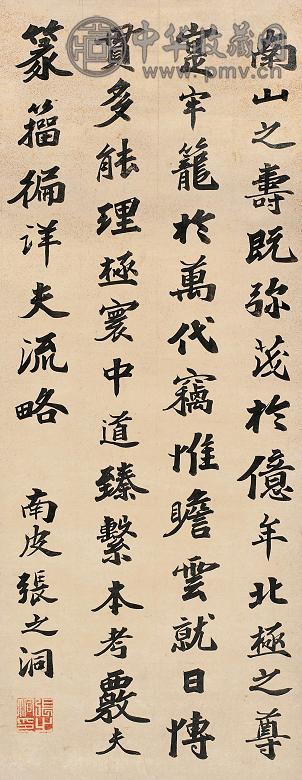 中华收藏网
www.pmv.cn
南山之壽既弥茂於億年北極之尊
寔牢籠於萬代竊惟瞻雲就日博
貫多能理極寰中道臻繫本考覈夫
篆籕徧詳夫流略
南皮張之洞